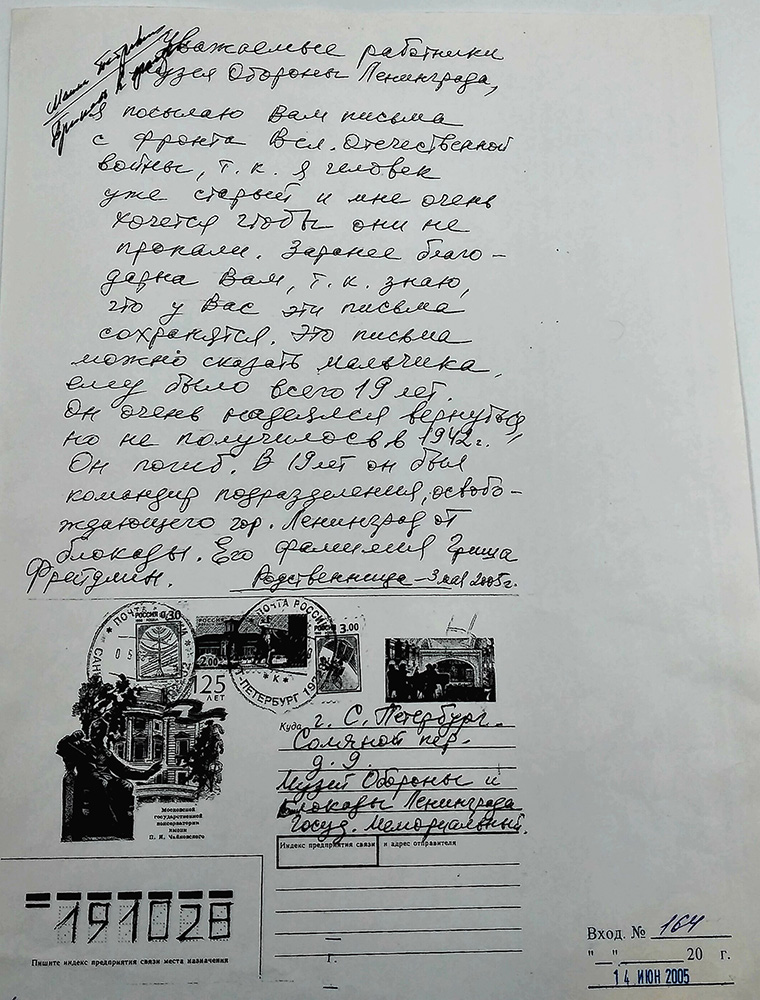 Уважаемые работники
музея Обороны Ленинграда,
я посылаю Вам письма
с фронта Вел. Отечественной
войны, т. к. я человек
уже старый и мне очень
хочется чтобы они не
пропали. Заранее благо-
дарна Вам, т. к. знаю,
что у Вас эти письма
сохранятся. Это письма
можно сказать мальчика,
ему было всего 19 лет.
Он очень надеялся вернуться,
но не получилось в 1942 г.
Он погиб. В 19 лет он был
командир подразделения, освобо-
ждающего гор. Ленинград от
блокады. Его фамилия Гриша
Фрейдлин. Родственница – 3 мая 2005 г.
ПОЧТА
РОССИЯ 0,30
ПОЧТА РОССИИ
РОССИЯ 3.00
2.00
05
125
ЛЕТ
К
С-ПЕТЕРБУРГ 192
Московской
государственной
консерватории
имени
П. И. Чайковского
Куда г. С. Петербург.
Соляной пер.
д. 9.
Музей Обороны и
Блокады Ленинграда
Госуд. Мемориальный.
Индекс предприятия связи и адрес отправителя
191028
Пишите индекс предприятия связи места назначения
Вход. № 164
"__" ______ 20 г.
14 ИЮН 2005